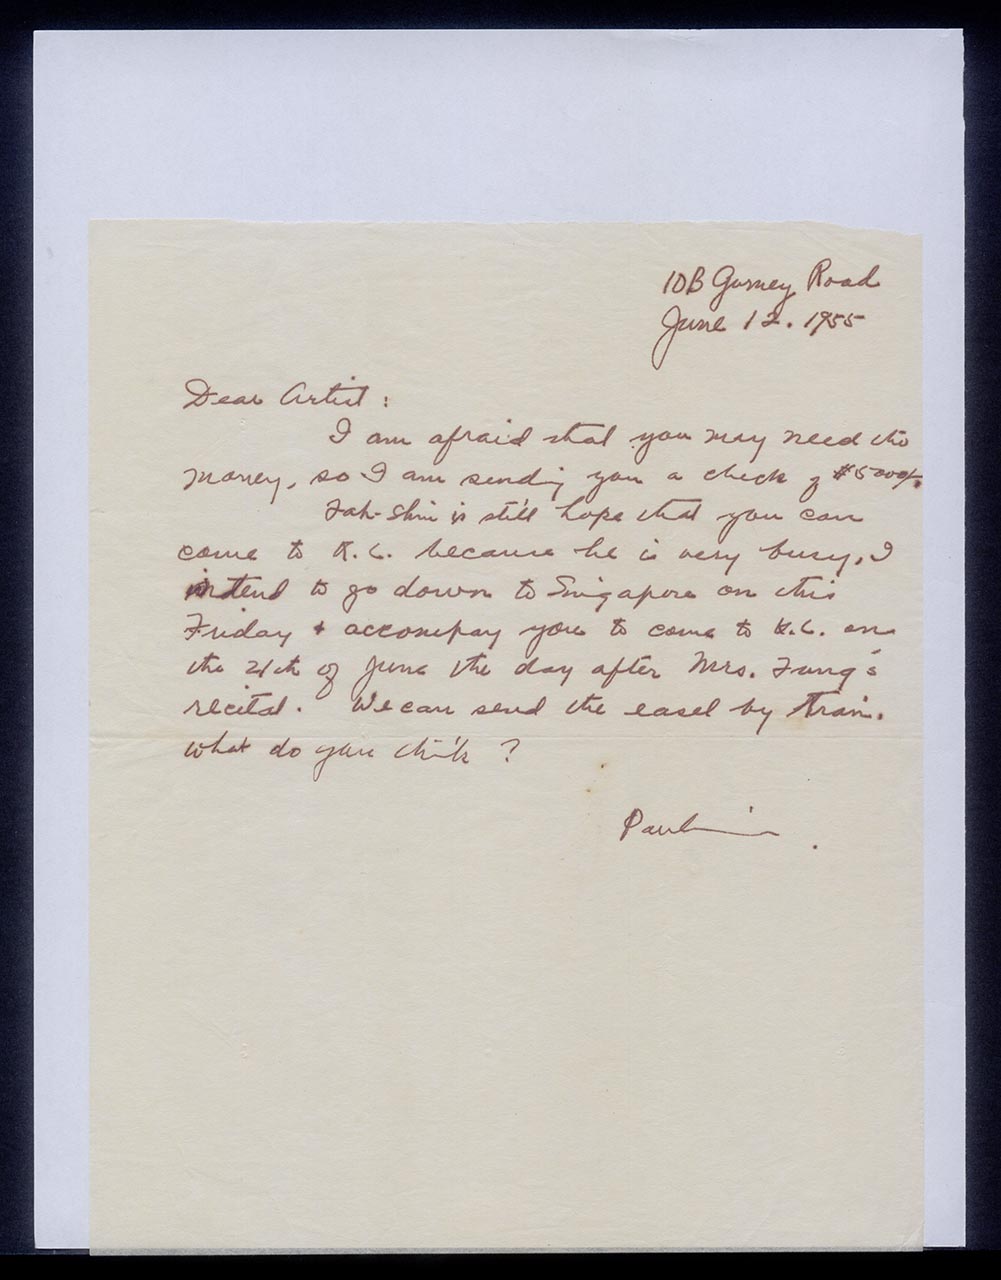 10B Gurney Road
June 12. 1955
Dear Artist:
I am afraid that you may need the
money, so I am sending you a check of
Fah-Shin is still hope that you can
come to K.L. because he is very busy, I
intend to go down to Singapore on this
Friday & accompay you to come to K.L. on
the 21th of June the day after Mrs. Fung's
recital. We can send the easel by train.
What do you think?
Pauline